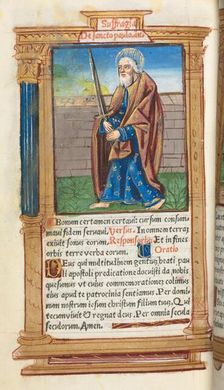 Suffragia
De sancto paulo. añ
Bonum certamen certaui: cursum consum
maui fidem seruaui. Versus. In omnem terrā
exiuit sonus eorum. Responsorio. Et in fines
orbis terre verba eorum. Oratio
Deus qui multitudinem gentiū beati pau
li apostoli predicatione docuisti: da nobis
quesumus vt cuius commemorationē colimus
eius apud te patrocinia sentiamus. Per domi
num nostrum iesum christum filium tuū. Qui
tecum viuit & regnat deus. Per omnia secula
seculorum. Amen.